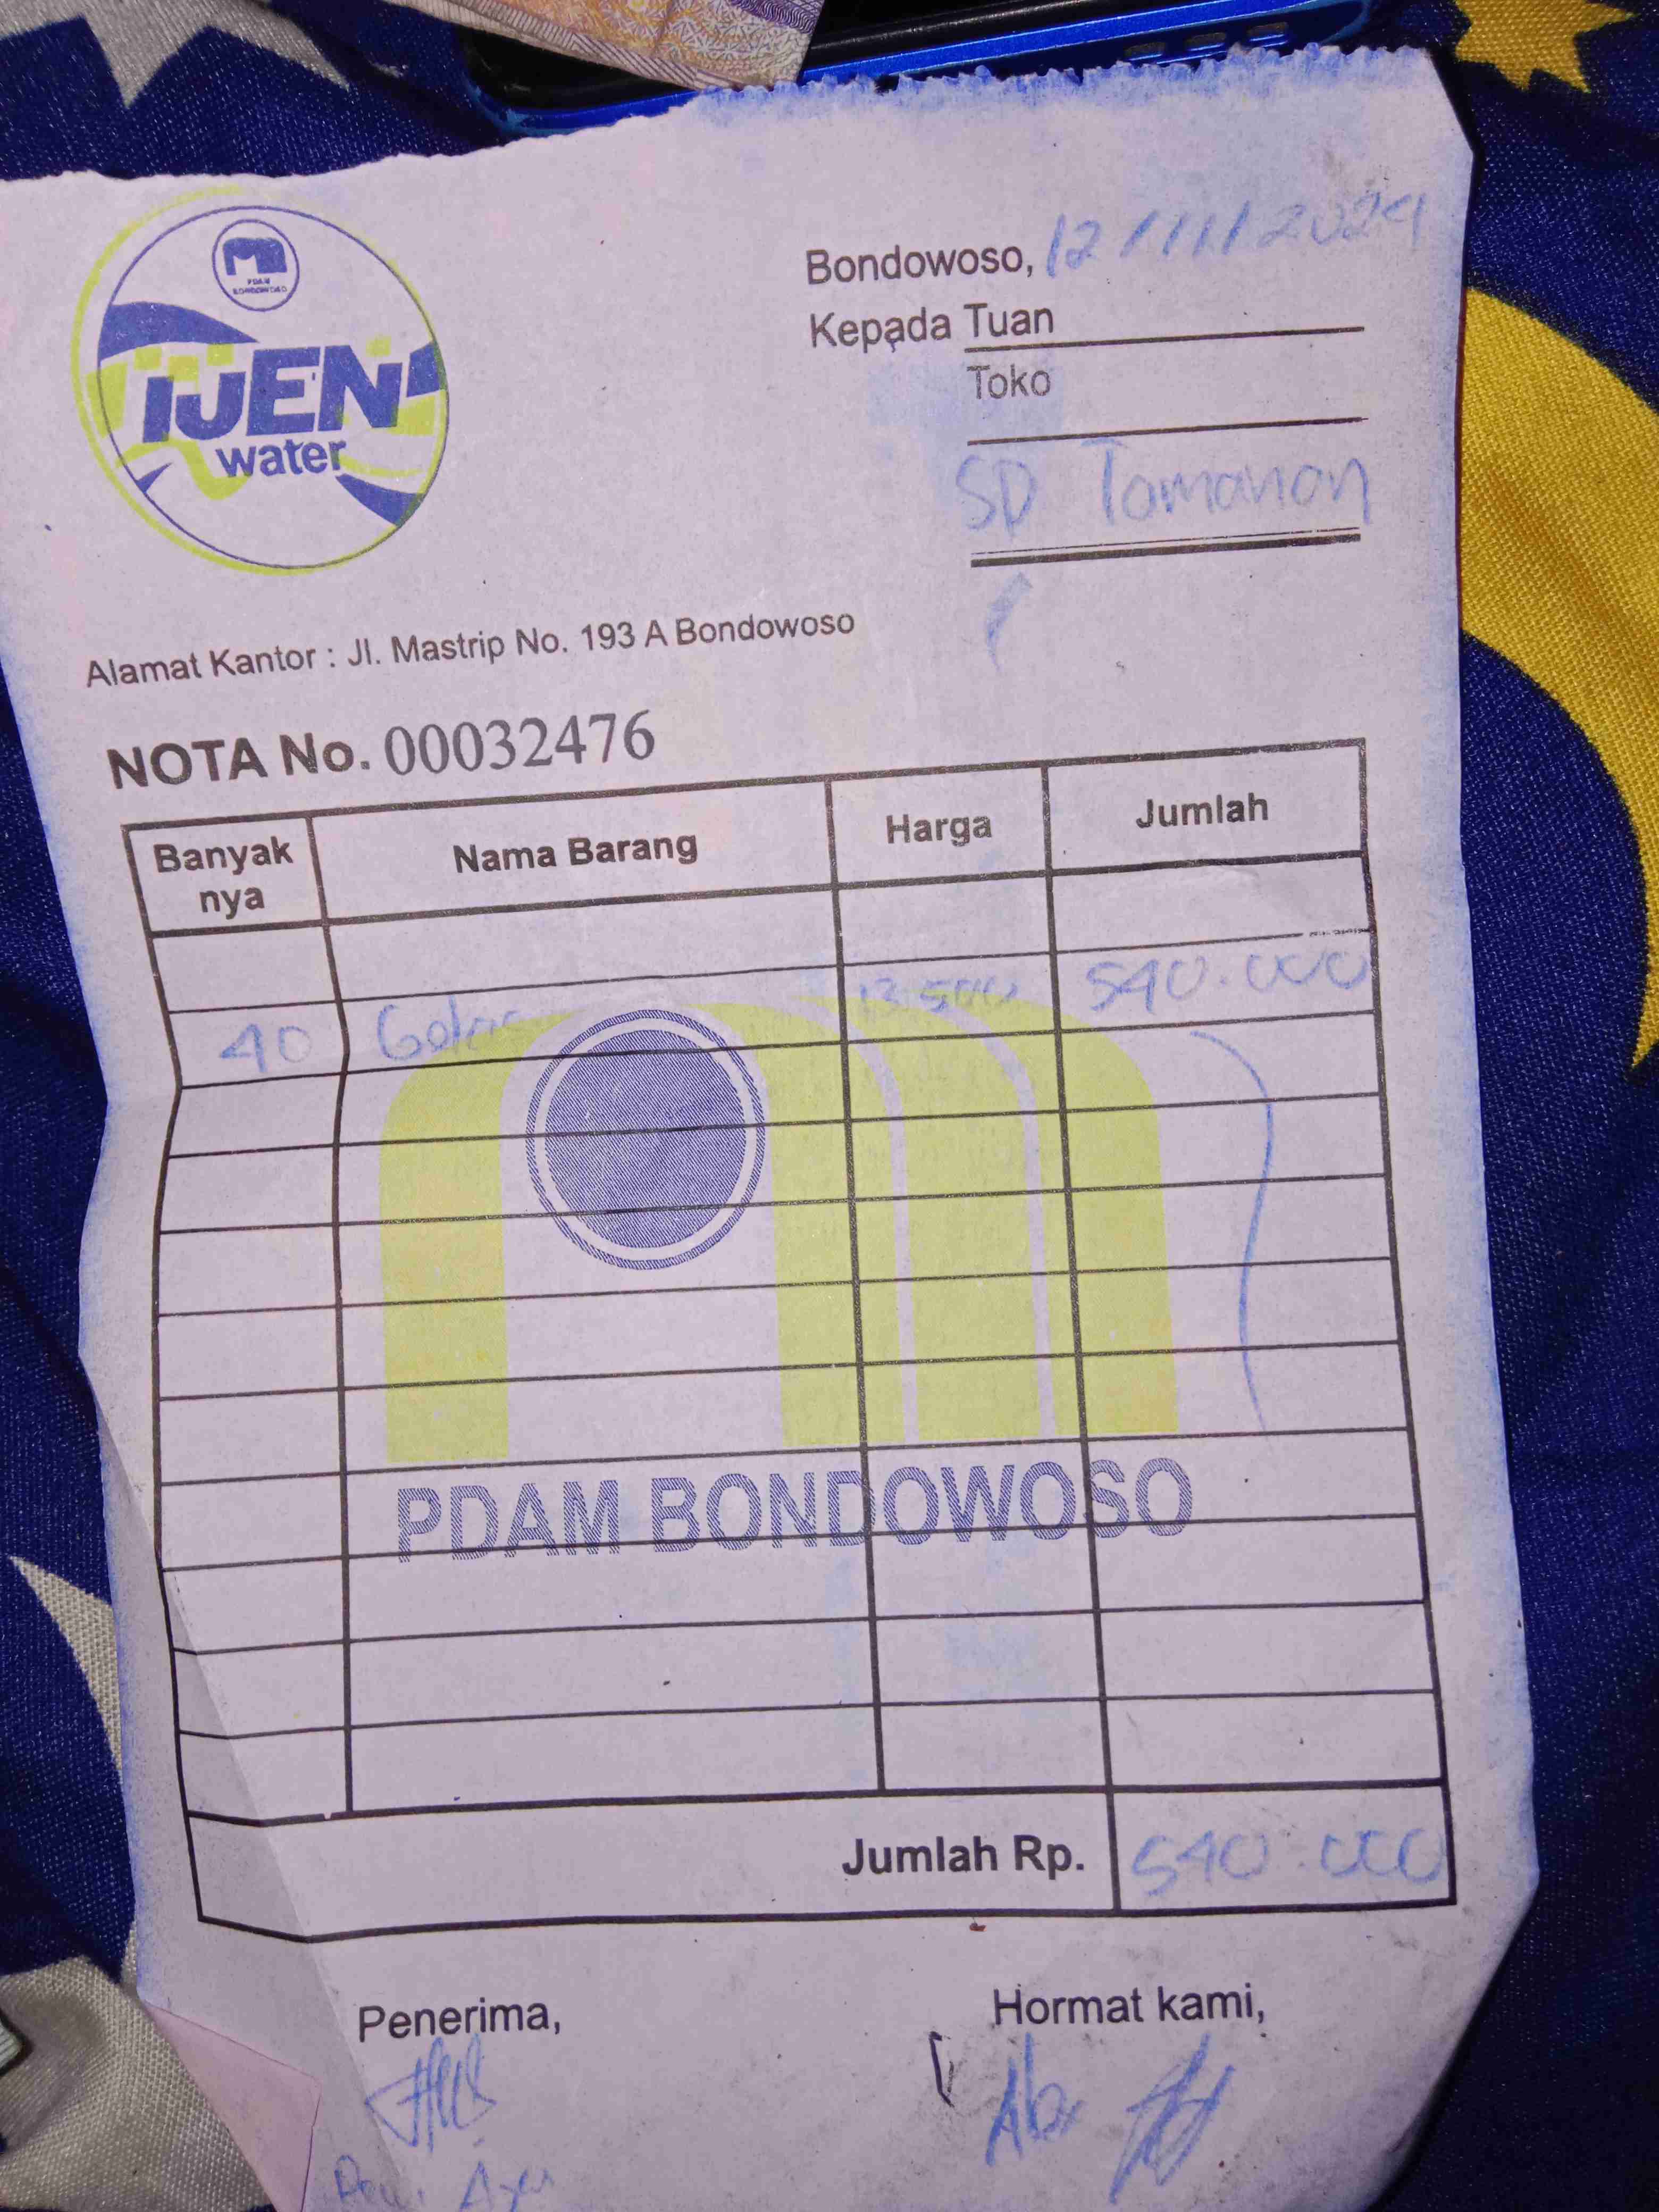 PDAM
BONDOWOSO
IJEN
water
Bondowoso, 12/11/2024
Kepada Tuan
Toko
SD Tamanan
Alamat Kantor : Jl. Mastrip No. 193 A Bondowoso
NOTA No. 00032476
Banyak nya Nama Barang Harga Jumlah
40 Gelas 13.500 540.000
PDAM BONDOWOSO
Jumlah Rp. 540.000
Penerima, Hormat kami,